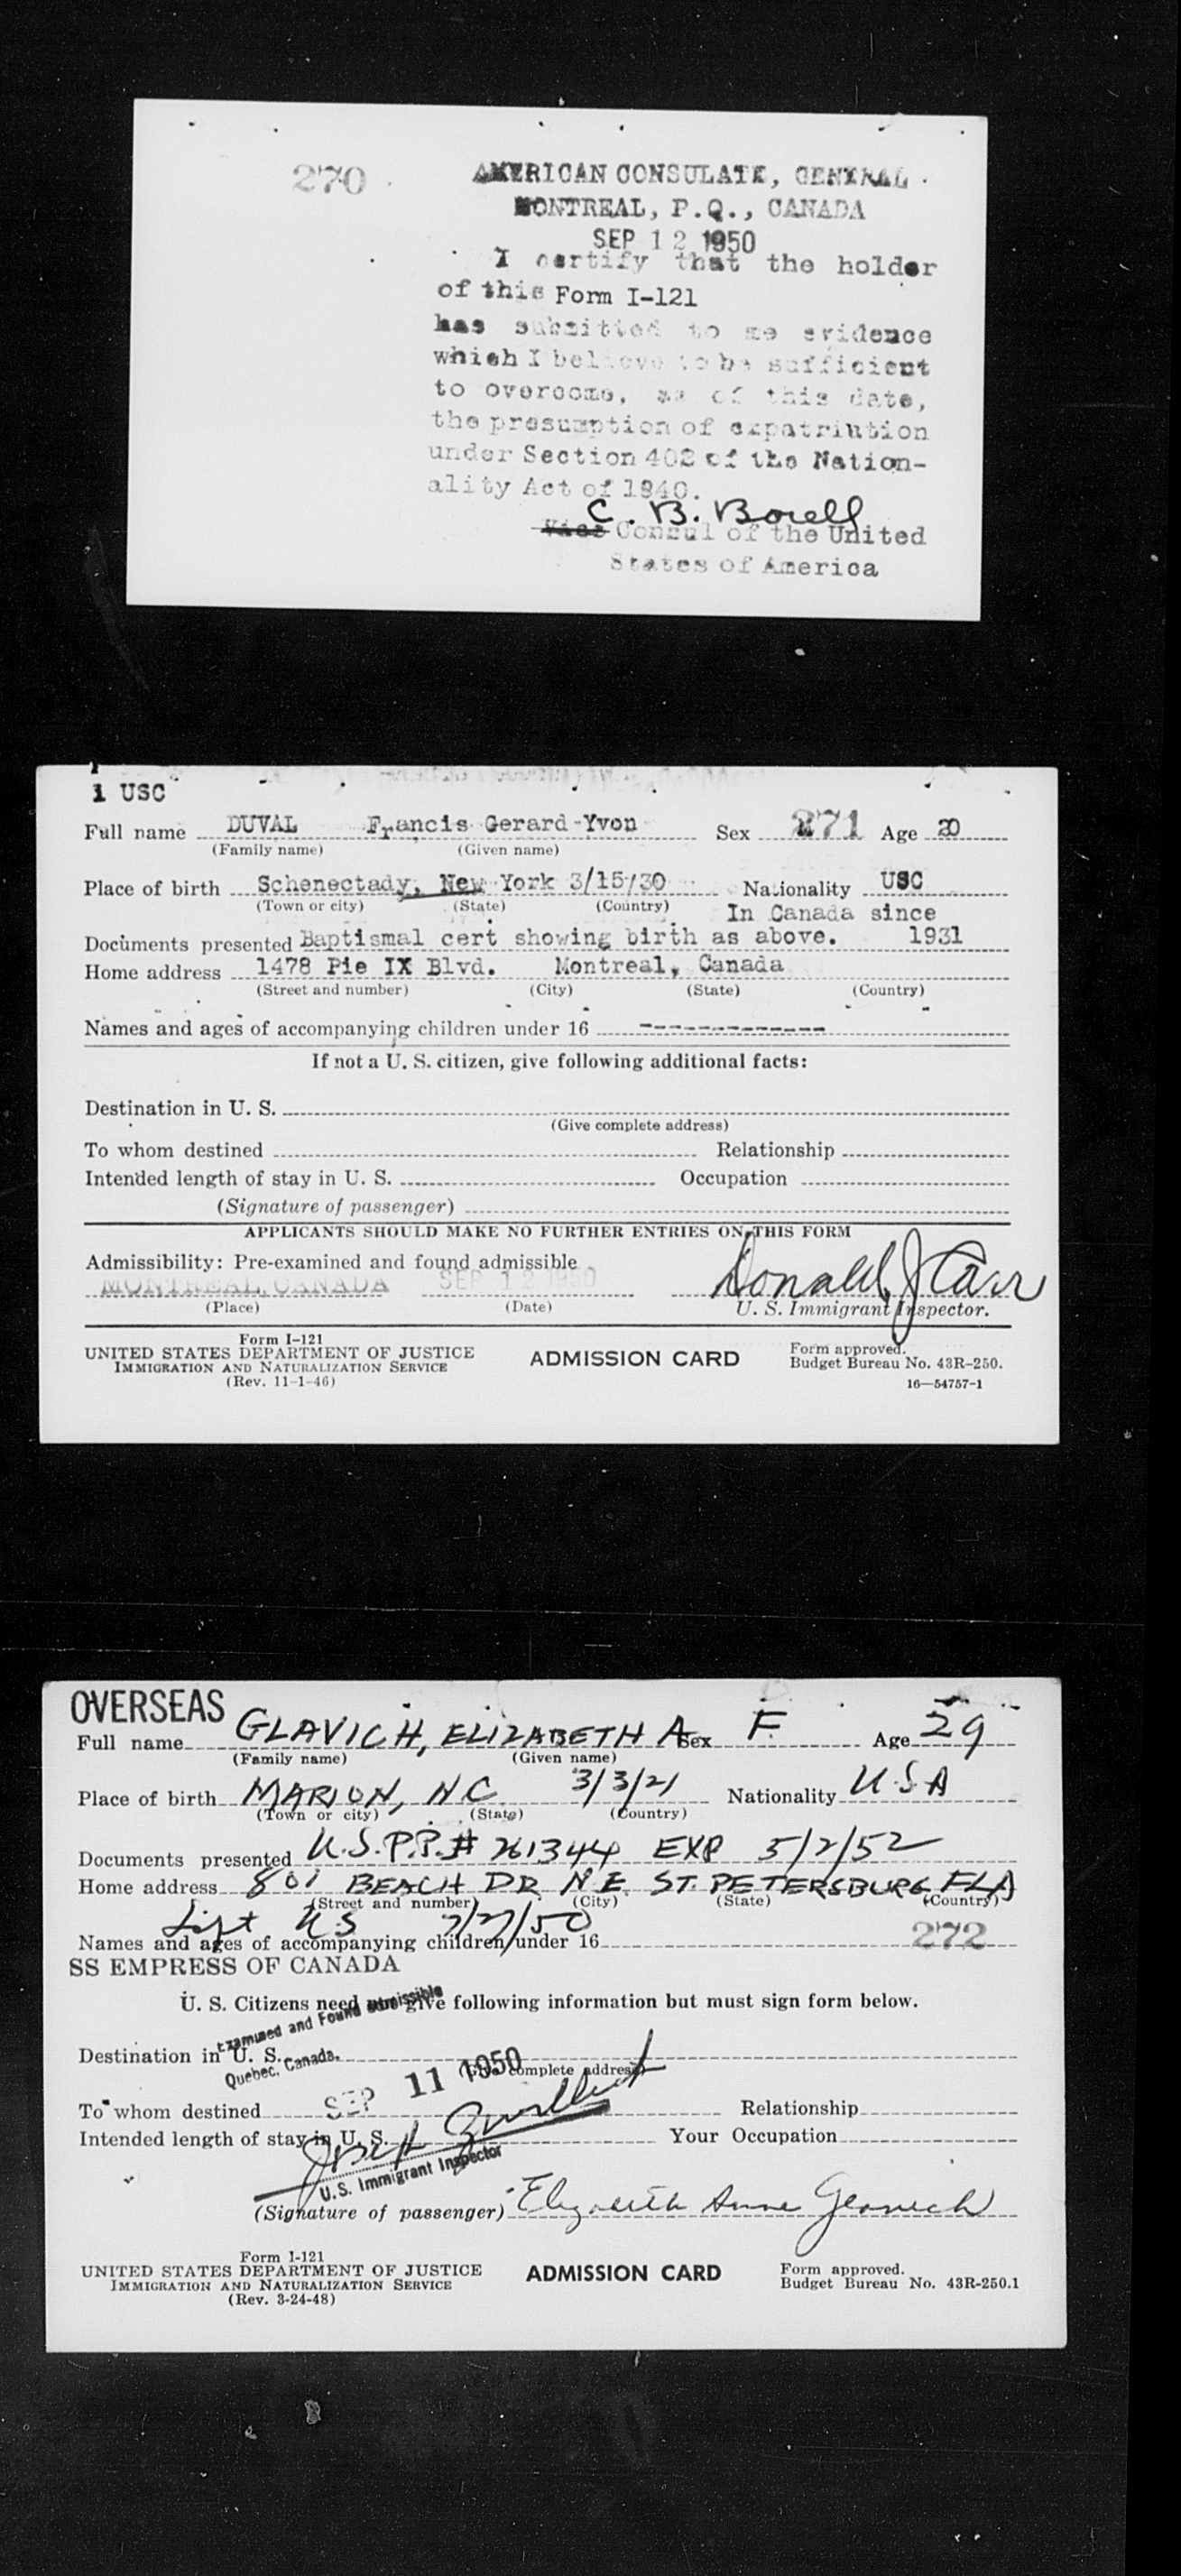 270
AMERICAN CONSULATE, GENERAL
MONTREAL, P.Q., CANADA
SEP 12 1950
I certify that the holder
of this Form I-121
has submitted to me evidence
which I believe to be sufficient
to overcome, as of this date,
the presumption of expatriation
under Section 402 of the Nation-
ality Act of 1940.
C. B. Borell
Vice Consul of the United
States of America
1 USC
Full name DUVAL Francis Gerard-Yvon Sex 271 Age 20
(Family name) (Given name)
Place of birth Schenectady, New York 3/15/30 Nationality USC
(Town or city) (State) (Country) In Canada since
Documents presented Baptismal cert showing birth as above. 1931
Home address 1478 Pie IX Blvd. Montreal, Canada
(Street and number) (City) (State) (Country)
Names and ages of accompanying children under 16 -------------
If not a U. S. citizen, give following additional facts:
Destination in U. S.
(Give complete address)
To whom destined Relationship
Intended length of stay in U. S. Occupation
(Signature of passenger)
APPLICANTS SHOULD MAKE NO FURTHER ENTRIES ON THIS FORM
Admissibility: Pre-examined and found admissible
MONTREAL, CANADA SEP 12 1950 Donald J Carr
(Place) (Date) U. S. Immigrant Inspector.
Form I-121
UNITED STATES DEPARTMENT OF JUSTICE
IMMIGRATION AND NATURALIZATION SERVICE
(Rev. 11-1-46)
ADMISSION CARD
Form approved.
Budget Bureau No. 43R-250.
16—54757-1
OVERSEAS
Full name GLAVICH, ELIZABETH A Sex F. Age 29
(Family name) (Given name)
Place of birth MARION, N C 3/3/21 Nationality U.S.A
(Town or city) (State) (Country)
Documents presented U.S.P.P.# 261344 EXP 5/2/52
Home address 801 BEACH DR N.E. ST. PETERSBURG FLA
(Street and number) (City) (State) (Country)
U.S 7/27/50
Names and ages of accompanying children under 16 272
SS EMPRESS OF CANADA
U. S. Citizens need not give following information but must sign form below.
Examined and Found Admissible
Destination in U. S.
Quebec, Canada.
(Give complete address)
SEP 11 1950
To whom destined Relationship
Intended length of stay in U. S. Your Occupation
U.S. Immigrant Inspector
(Signature of passenger) Elizabeth Anne Glavich
Form I-121
UNITED STATES DEPARTMENT OF JUSTICE
IMMIGRATION AND NATURALIZATION SERVICE
(Rev. 3-24-48)
ADMISSION CARD
Form approved.
Budget Bureau No. 43R-250.1